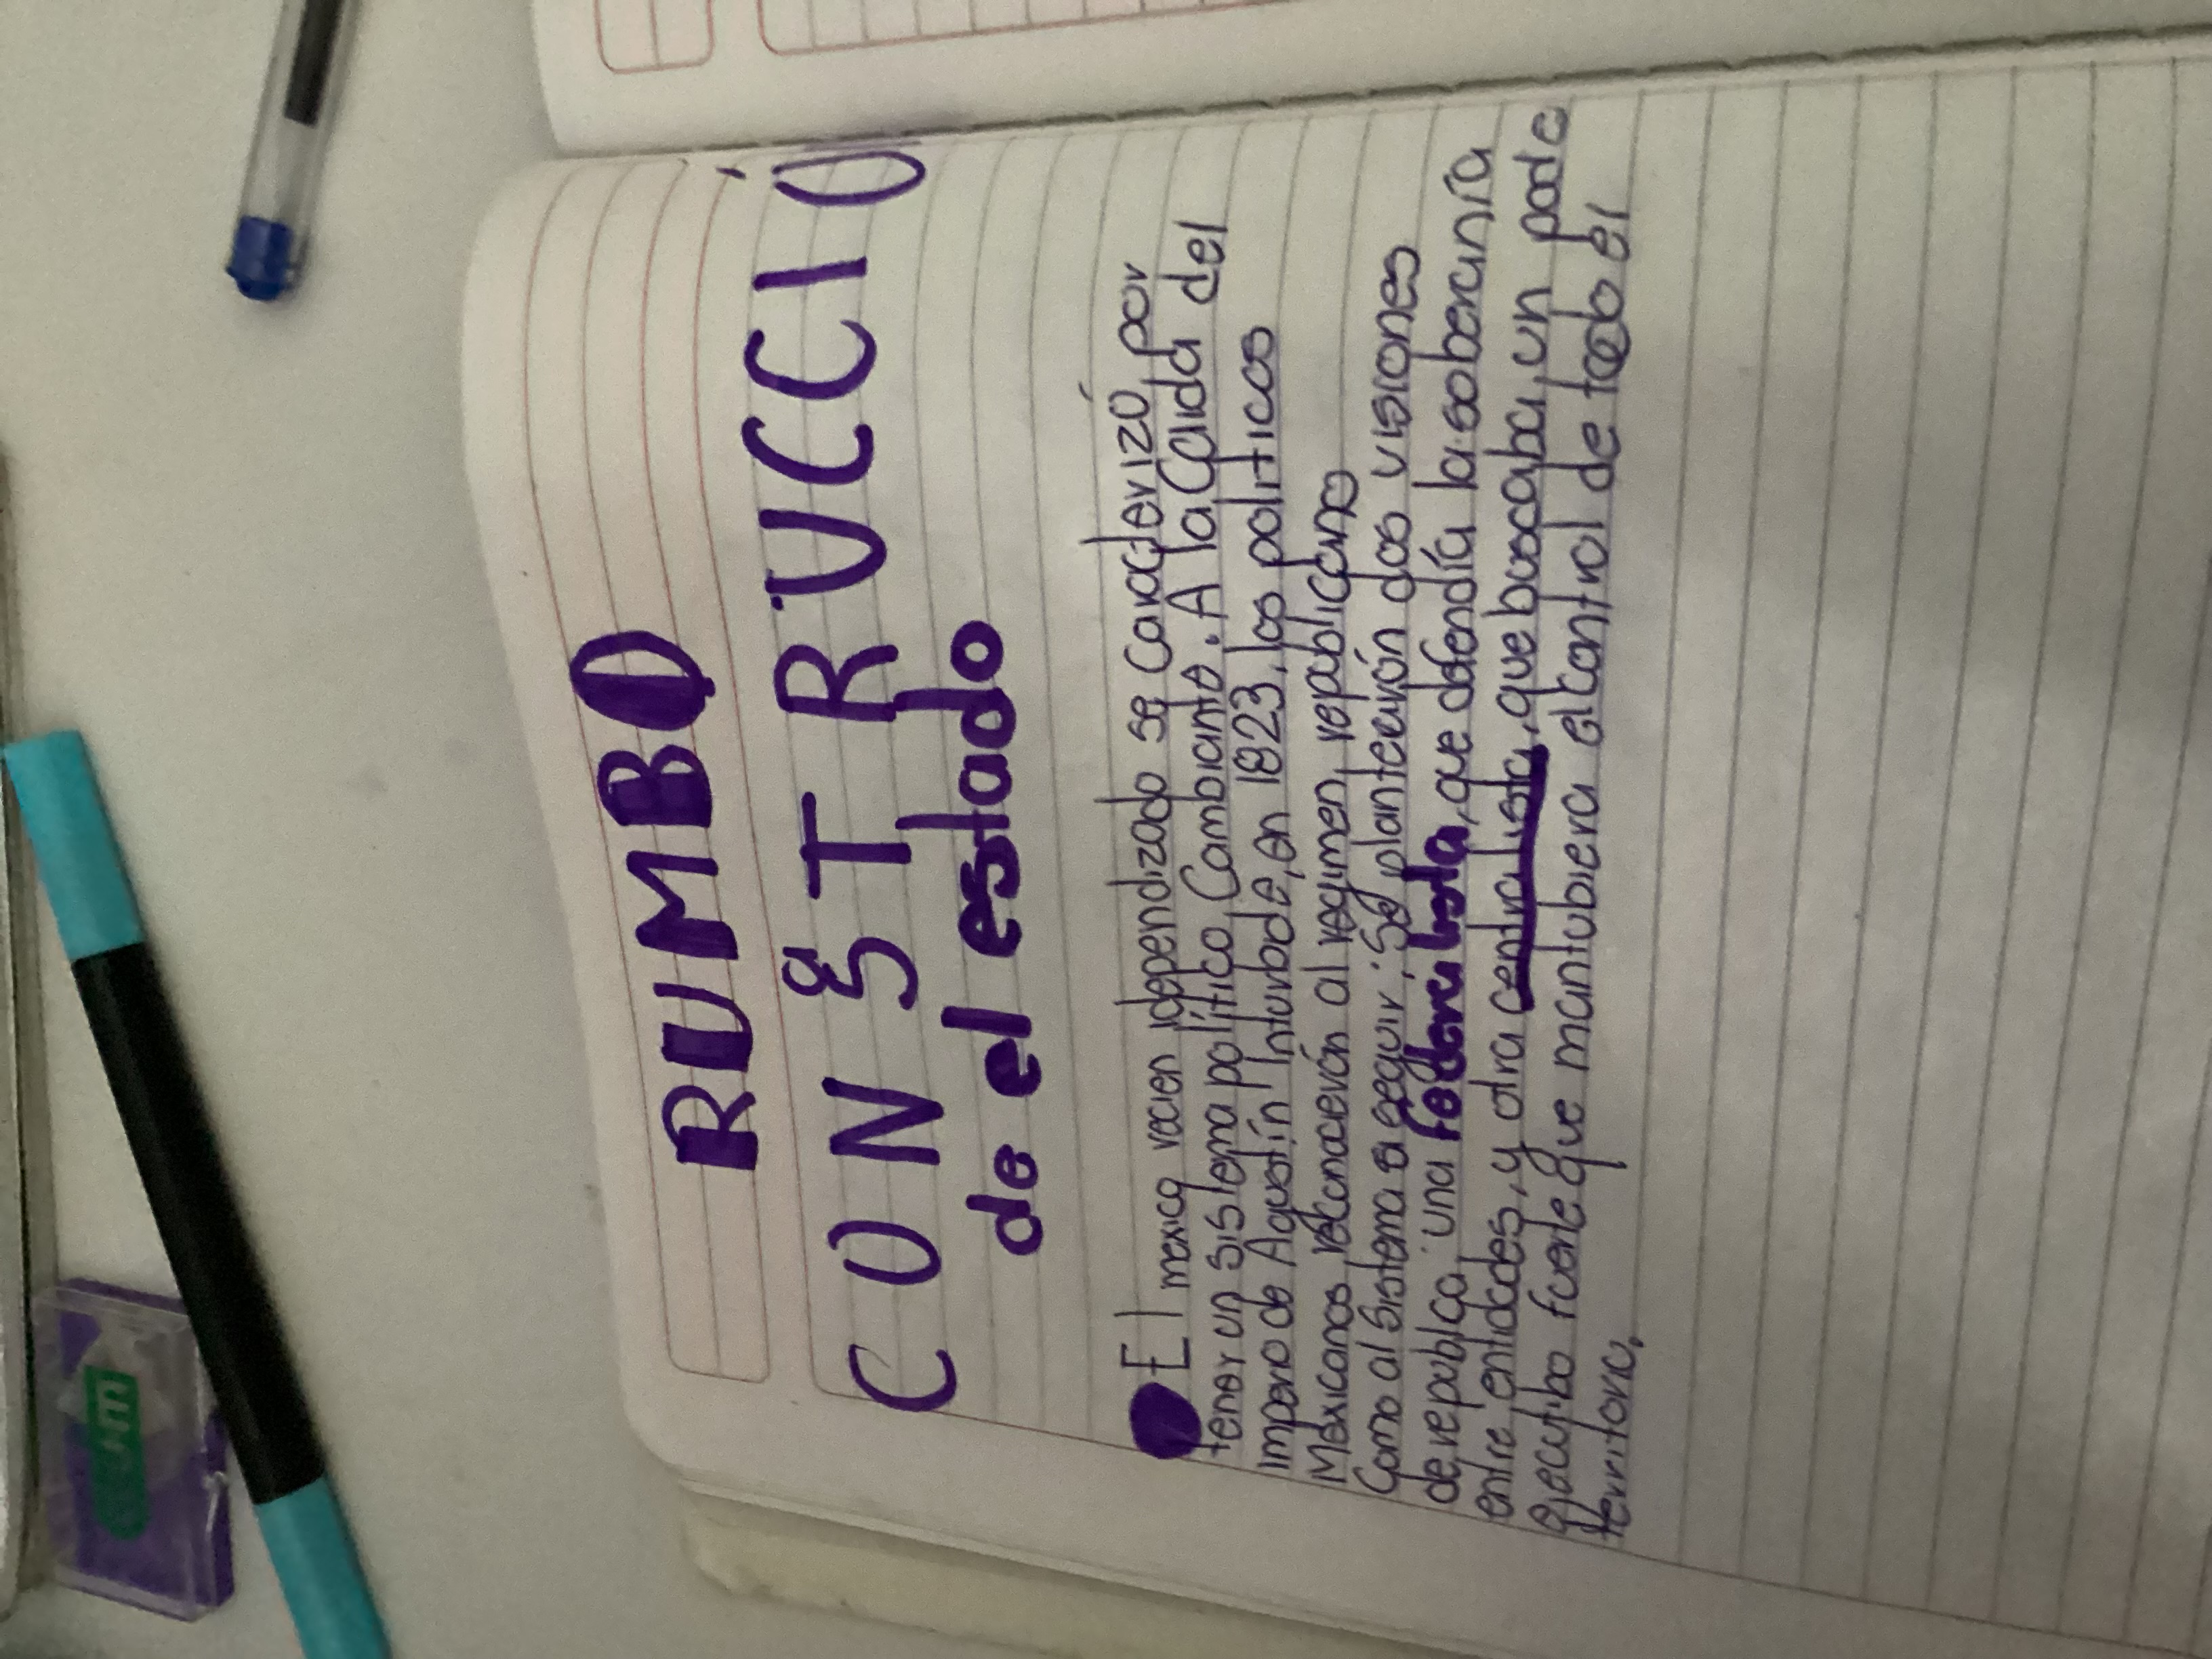 RUMBO
CONSTRUCCIÓ
de el estado
El mexico recien idependizado se caracterizó por
tener un sistema político Cambiante. A la Caida del
Imperio de Agustín Inturbode, en 1823, los politicos
Mexicanos, reconocierón al regimen republicano
Como al sistema a seguir; Se plantearón dos visiones
de republica, una federalista, que defendía la soberanía
entre entidades, y otra centralista, que buscaba, un pode
ejecutibo fuerte que mantubiera el control de todo el
territorio.